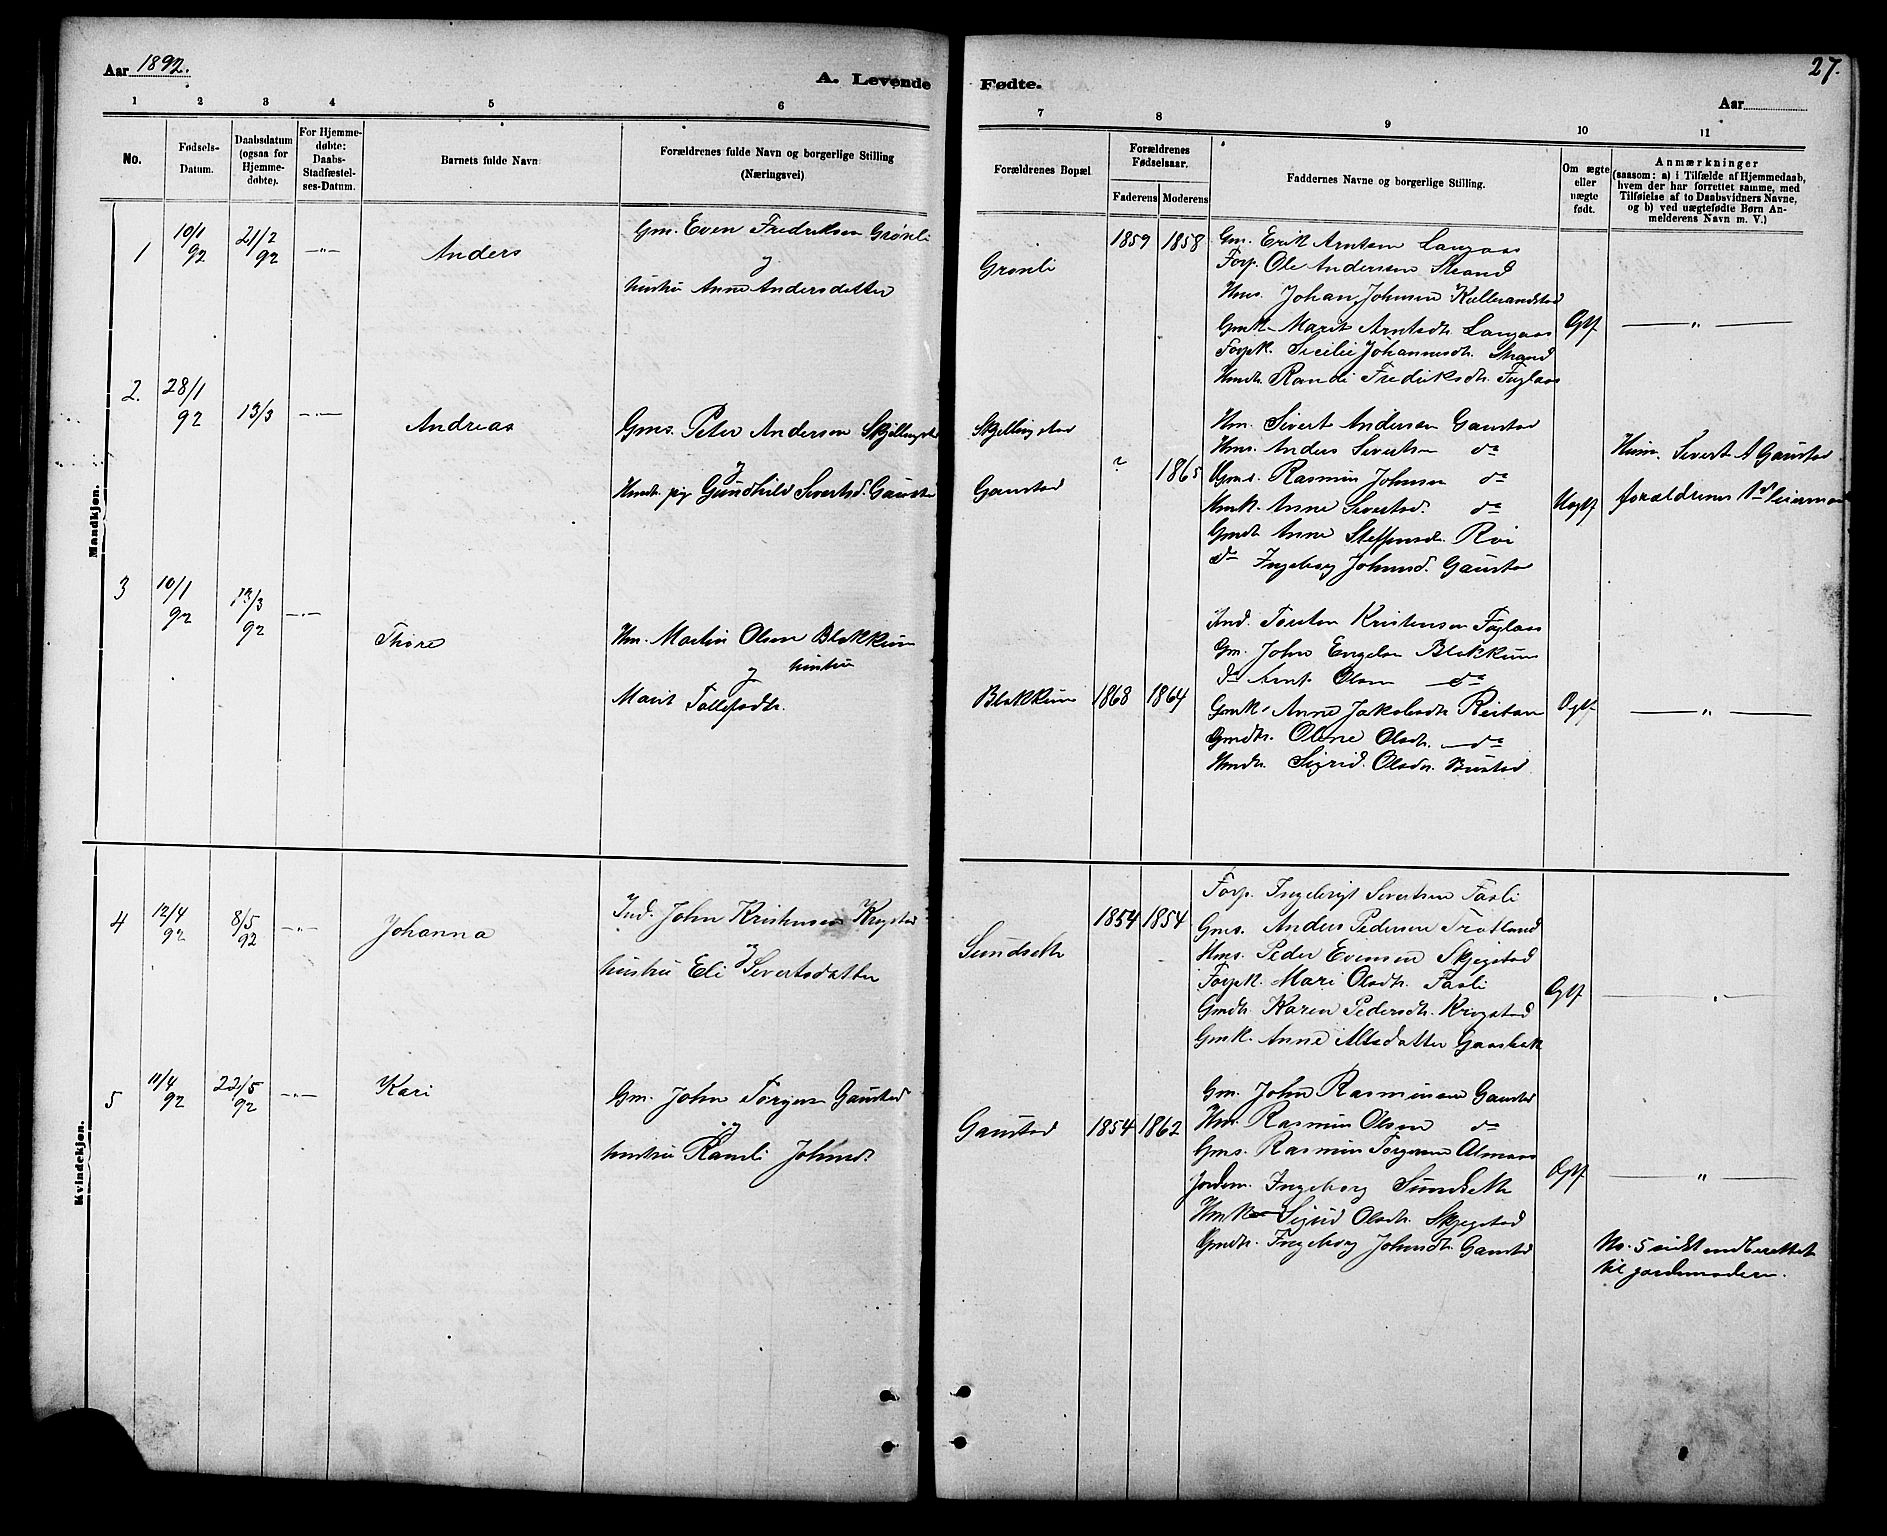 Aar 1892.
A. Levende Fødte.
27.
Aar
1 2 3 4 5 6 7 8 9 10 11
No.
Fødsels-Datum.
Daabsdatum (ogsaa for Hjemme-døbte).
For Hjemme-døbte: Daabs-Stadfæstel-ses-Datum.
Barnets fulde Navn
Forældrenes fulde Navn og borgerlige Stilling (Næringsvei)
Forældrenes Bopæl
Forældrenes Fødselsaar.
Faderens Moderens
Faddernes Navne og borgerlige Stilling.
Om ægte eller uægte født.
Anmærkninger
(saasom: a) i Tilfælde af Hjemmedaab,
hvem der har forrettet samme, med
Tilføielse af to Daabsvidners Navne,
og b) ved uægtefødte Børn An-
melderens Navn m. V.)
Mandkjøn.
1 10/1 92 21/2 92 -"- Anders
Gm. Even Fredriksen Grønli
og
hustru Anne Andersdatter
Grønli 1859 1858
Gm. Erik Arntsen Langaas
Forp. Ole Andersen Strand
Hms. Johan Johnsen
Gmk. Marit Arntsdtr. Langaas
Forpk. Sicilie Johannesdtr. Strand
Hmdtr. Randi Fredriksdtr. Fuglaas
Ægtf. "
2. 28/1 92 13/3 -"- Andreas
Gms. Peter Andersen Skjellingstad
og
Hmdtr. pige Gundhild Sivertsd. Gaustad
Skjellingstad
Gaustad
? 1865
Hm. Sivert Andersen Gaustad
Hms. Anders Sivertsen do
Gms. Rasmus Johnsen do
Hmk. Anne Sivertsd. do
Gmdtr. Anne Steffensd. Roi
do Ingeborg Johnsd. Gaustad
Uægtf.
Husm. Sivert A Gaustad
forældrenes 1ste leiermaal
3 10/1 92 13/3 92 -"- Thore
Hm. Martin Olsen Blokkum
og hustru
Marit Tollefsdtr.
Blokkum 1868 1864
Ind. Torsten Kristensen Fuglaas
Gm. John Engelsen Blokkum
do Arnt Olsen do
Gmk. Anne Jakobsdtr. Reitan
Gmdtr. Oline Olsdtr. do
Hmdtr. Sigrid Olsdtr. Bustad
Ægtf. "
Kvindekjøn.
4 12/4 92 8/5 92 -"- Johanna
Ind. John Kristensen Krogstad
og
hustru Eli Sivertsdatter
Sundseth 1854 1854
Forp. Ingebrigt Sivertsen Fasli
Gms. Anders Pedersen Trotland
Hms. Peder Evensen Skjegstad
Forpk. Mari Olsdtr. Fasli
Gmdtr. Karen Pedersdtr. Krogstad
Gmk. Anne Nilsdatter Gaasbak
Ægtf. "
5 11/4 92 22/5 92 -"- Kari
Gm. John Torgersen Gaustad
og
hustru Randi Johnsdtr.
Gaustad 1854 1862
Gm. John Rasmussen Gaustad
Hm. Rasmus Olsen do
Gms. Rasmus Torgersen Almaas
Jordem. Ingeborg Sundseth
Hmk. Sigrid Olsdtr. Skjegstad
Gmdtr. Ingeborg Johnsdtr. Gaustad
Ægtf. "
No. 5 sidst indberettet
til jordemoderen.